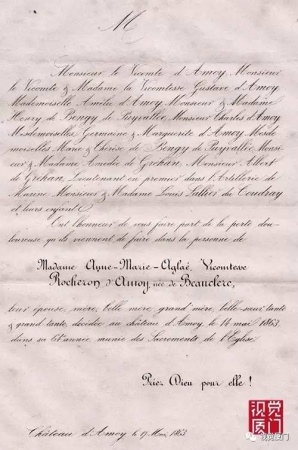 M
Monsieur le Vicomte d'Amoy, Monsieur
le Vicomte & Madame la Vicomtesse Gustave d'Amoy,
Mademoiselle Amélie d'Amoy, Monsieur & Madame
Henry de Bengy de Puyvallée, Monsieur Charles d'Amoy
Mesdemoiselles Germaine & Marguerite d'Amoy, Mesde-
moiselles Marie & Thérèse de Bengy de Puyvallée, Monsi-
eur & Madame de Gréban, Monsieur Albert
de Gréban, Lieutenant en premier dans l'Artillerie de
Marine, Monsieur & Madame Louis Lallier du Coudray
& leurs enfants
Ont l'honneur de vous faire part de la perte dou-
loureuse qu'ils viennent de faire dans la personne de
Madame Anne-Marie-Aglaé, Vicomtesse
Rocheron d'Amoy née de Beauclerc,
leur épouse, mère, belle mère, grand'mère, belle-sœur, tante
& grand'tante, décédée au château d'Amoy, le 14 mai 1863
dans sa année, munie des Sacrements de l'Eglise.
Priez Dieu pour elle !
Château d'Amoy le 17 Mai 1863
视觉医门
视觉医门